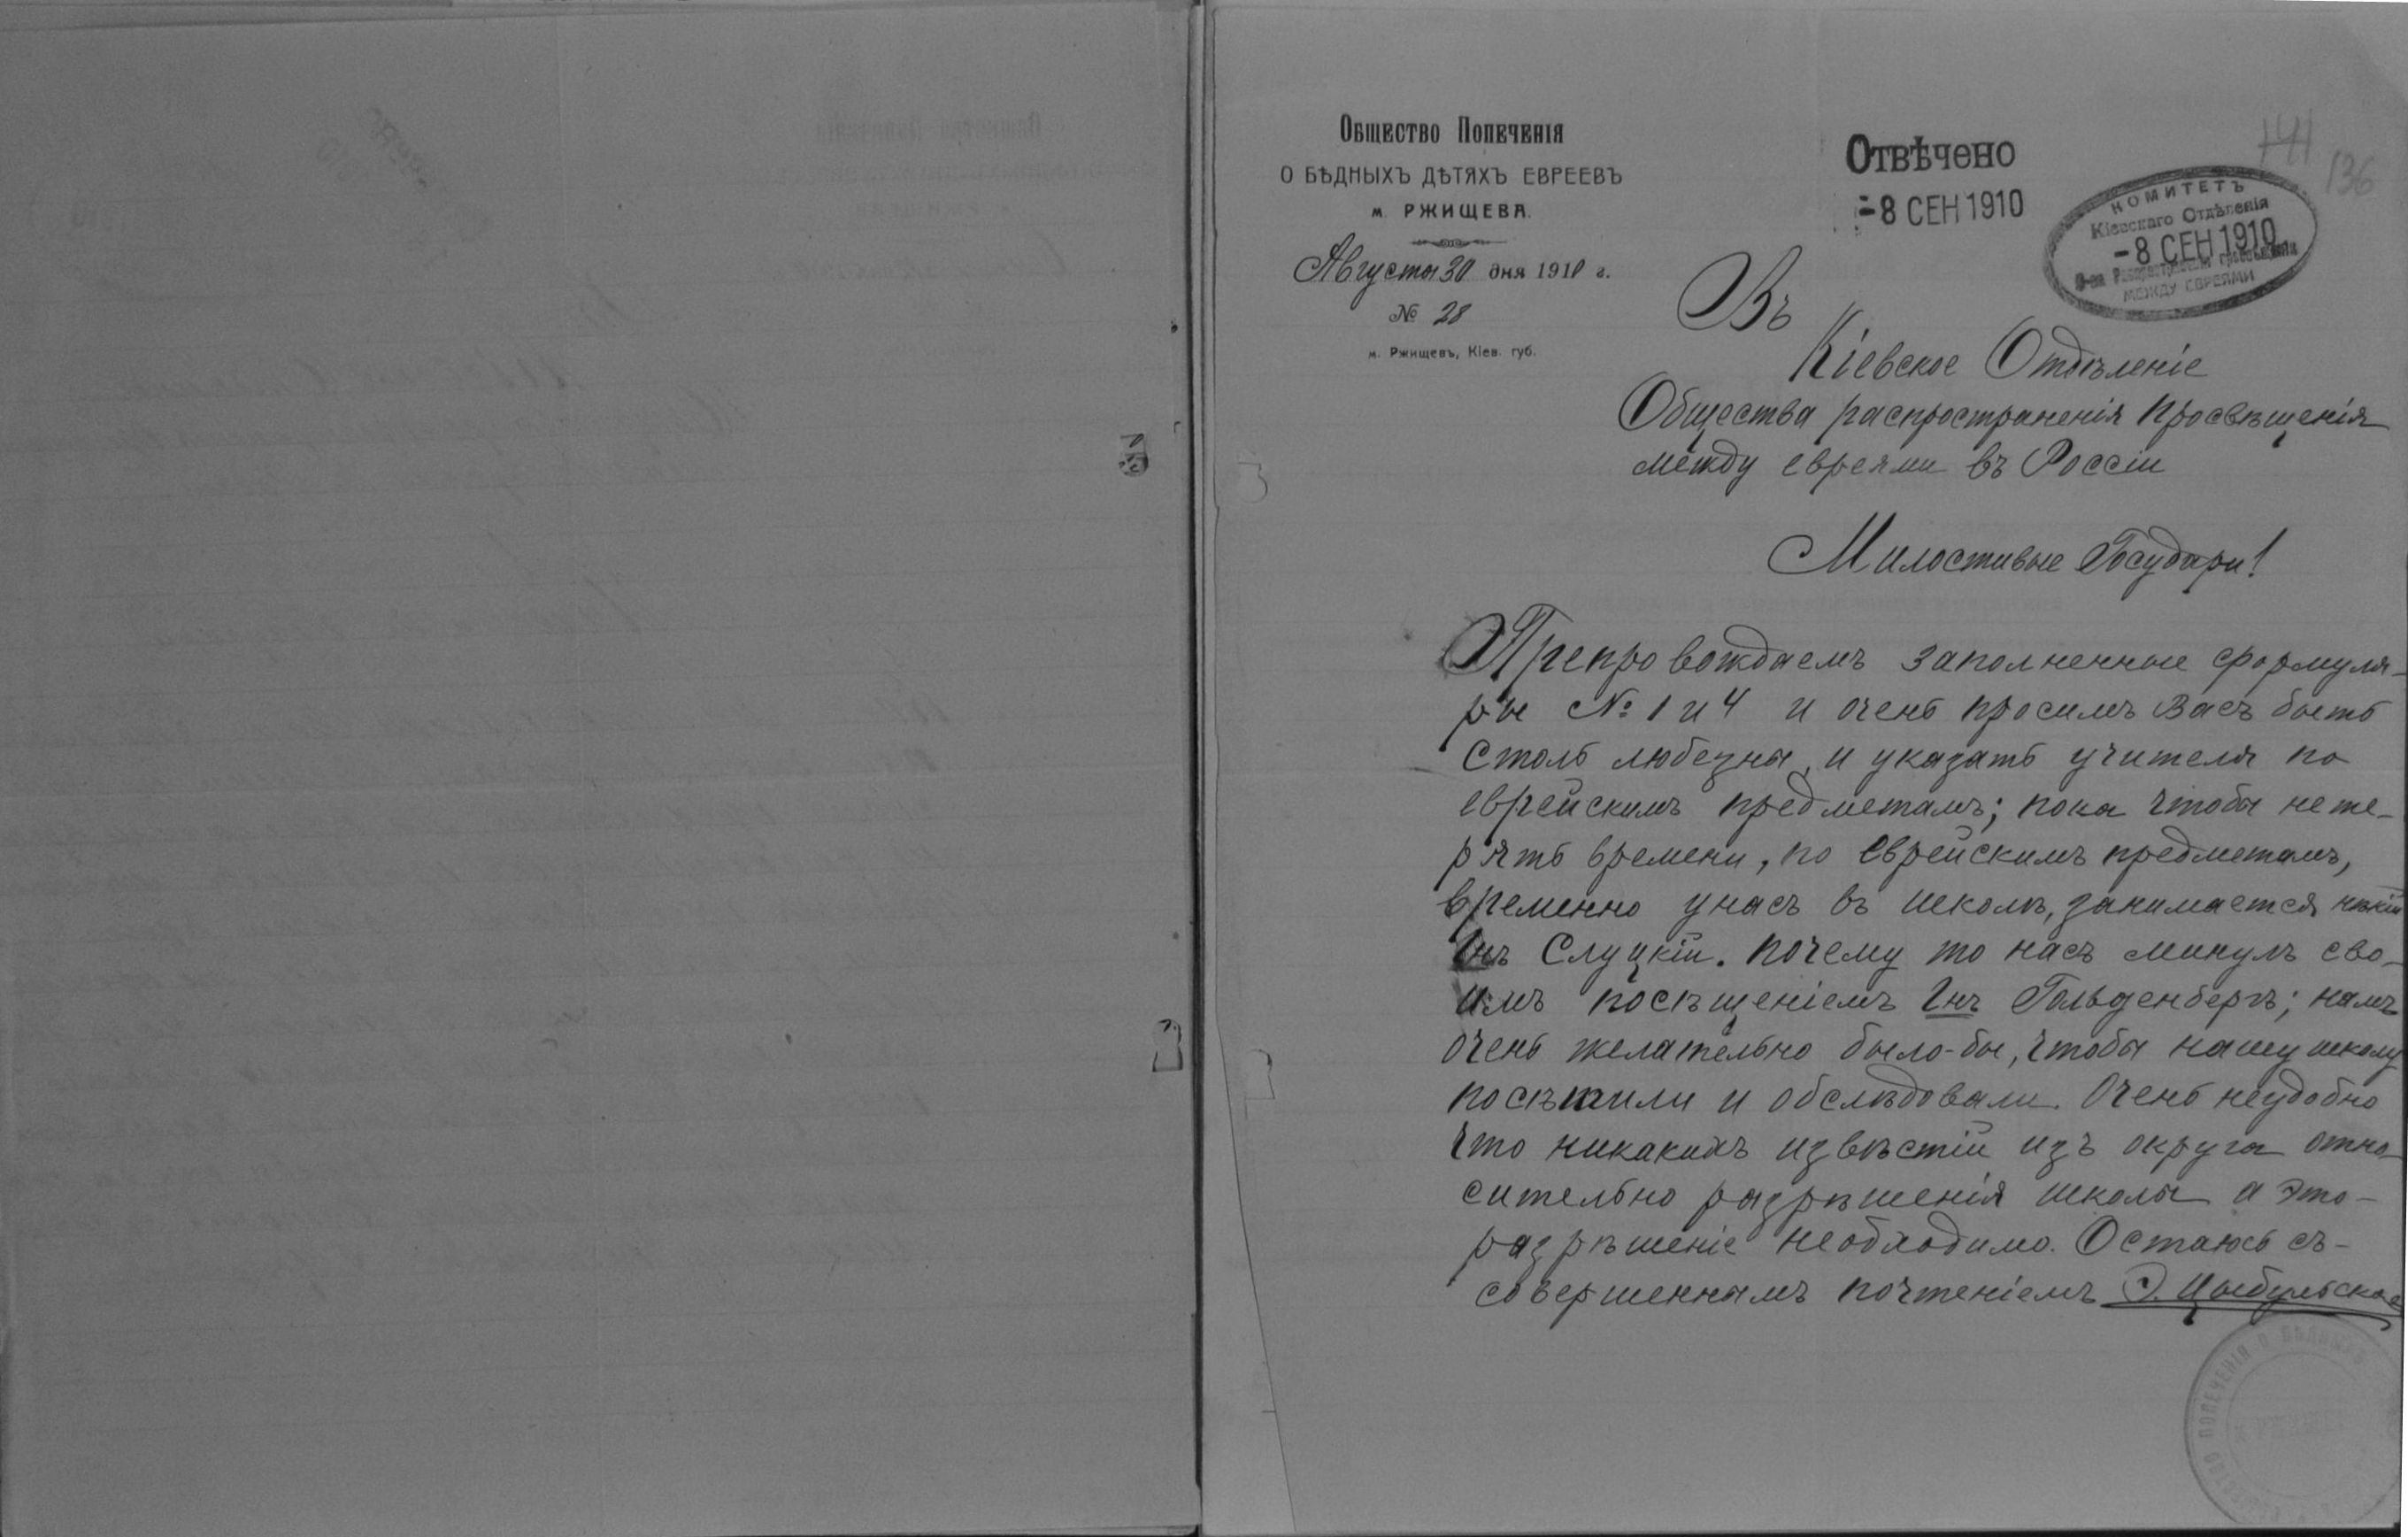 Общество Попеченія
О БѢДНЫХЪ ДѢТЯХЪ ЕВРЕЕВЪ
м. РЖИЩЕВА.
Августа 30 дня 1910 г.
№ 28
м. Ржищевъ, Кіев. губ.
Отвѣчено
-8 СЕН 1910
141
136
КОМИТЕТЪ
Кіевскаго Отдѣленія
-8 СЕН 1910
О-ва Распространенія просвѣщенія
МЕЖДУ ЕВРЕЯМИ
Въ
Кіевское Отдѣленіе
Общества распространенія просвѣщенія
между евреями въ Россіи
Милостивые Государи!
Препровождаемъ заполненные формуля-
ры № 1 и 4 и очень просимъ Васъ быть
столь любезны, и указать учителя по
еврейскимъ предметамъ; пока чтобы не те-
рять времени, по еврейскимъ предметамъ,
временно у насъ въ школѣ, занимается нѣкій
Гнъ Слуцкій. Почему то насъ минулъ сво-
имъ посѣщеніемъ Гнъ Гольденбергъ; намъ
очень желательно было-бы, чтобы нашу школу
посѣтили и обслѣдовали. Очень неудобно
что никакихъ извѣстій изъ округа отно-
сительно разрѣшенія школы а это-
разрѣшеніе необходимо. Остаюсь съ-
совершеннымъ почтеніемъ Э. Цыбульская
ОБЩЕСТВО ПОПЕЧЕНІЯ О БѢДНЫХЪ